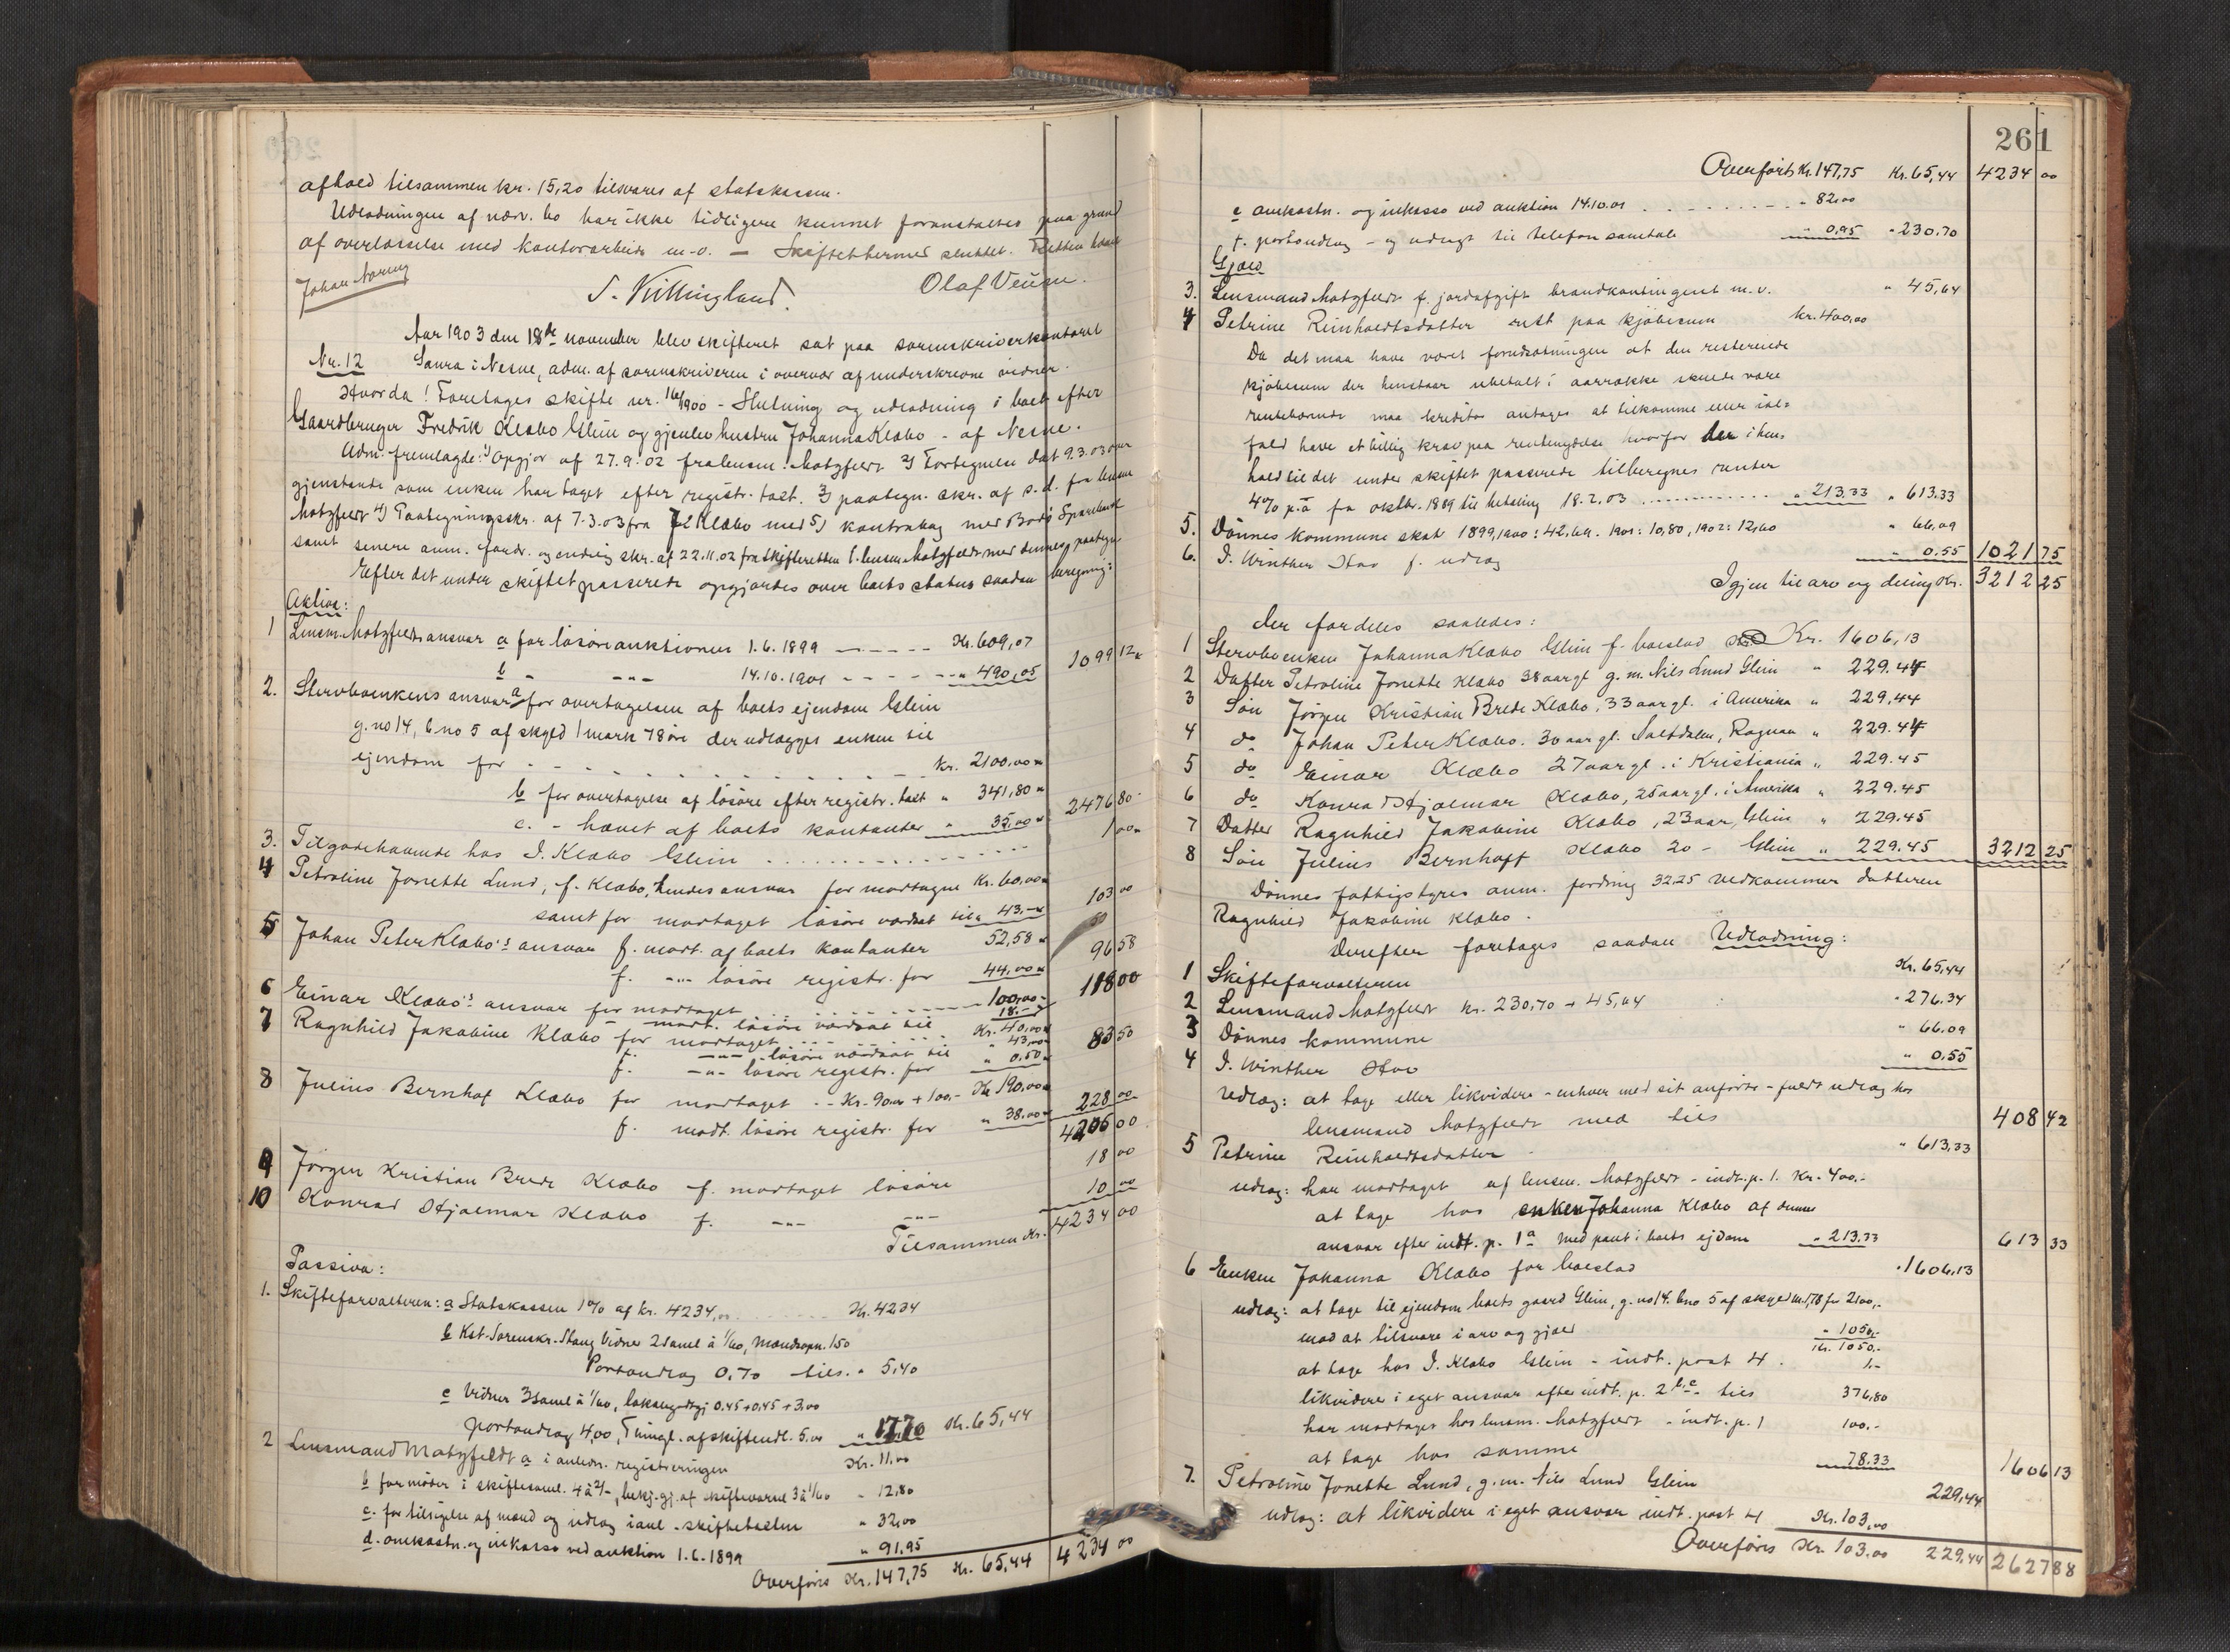 afhold tilsammen kr. 15,20 tilsvares af statskassen.
Udlodningen af nærv. bo har ikke tidligere kunnet foranstaltes paa grund
af overlæsselse med kontorarbeide m.v. — Skiftet hermed sluttet. Retten hævet
Johan Noring S. Killingland. Olaf Veien.
Aar 1903 den 18de november blev skifteret sat paa sorenskriverkontoret
Nr. 12 Saura i Nesne, adm. af sorenskriveren i overvær af underskrevne vidner.
Hvorda! Foretages skifte nr. 16/1900 - Slutning og udlodning i boet efter
Gaardbruger Fredrik Klæbo Glein og gjenlev. hustru Johanna Klæbo - af Nesne.
Adm. fremlagde: 1) Opgjør af 27.9.02 fra lensm. Motzfeldt 2) Fortegnelse dat 9.3.03 over
gjenstande som enken har taget efter registr. takst. 3) paategn. skr. af s.d. fra lensm
Motzfeldt 4) Paategningsskr. af 7.3.03 fra Klæbo med 5) kontrabog med Bodø Sparebank
samt senere anm. fordr. og endelig skr. af 22.11.02 fra skifteretten t. lensm. Motzfeldt med dennes paategn
Efter det under skiftet passerede opgjordes over boets status saadan beregning:
Aktiva:
1 Lensm. Motzfeldts ansvar a for løsøreauktionen 1.6.1899 ----- Kr. 609,07
b - -"- 14.10.1901 ----- " 490,05 1099 12
2. Stervboenkens ansvar a for overtagelsen af boets eiendom Glein
g.no 14, b no 5 af skyld 1 mark 78 øre der udlægges enken til
eiendom for - - - kr. 2100,00
b for overtagelse af løsøre efter registr. takst " 341,80
c. - hævet af boets kontanter " 35,00 2476 80
3. Tilgodehavende hos I. Klæbo Glein ..... 1 00
4 Petroline Jonette Lund, f. Klæbo, hendes ansvar for modtagne Kr. 60,00
samt for modtaget løsøre vurdert til " 43,- 103 00
5 Johan Peter Klæbo's ansvar f. modt. af boets kontanter 52,58
f. -"- løsøre registr. for 44,00 96 58
6 Einar Klæbo's ansvar for modtaget ..... 100,00
- modt. løsøre vurdert til 18.- 118 00
7 Ragnhild Jakobine Klæbo for modtaget ..... Kr. 40,00
f. -"- løsøre vurdert til " 43,00
f. -"- løsøre registr. for " 0.50 83 50
8 Julius Bernhof Klæbo for modtaget -- Kr. 90,00 + 100,- Kr 190,00
f. modt. løsøre registr. for " 38,00 228 00
4206 00
9 Jørgen Kristian Brede Klæbo f. modtaget løsøre 18 00
10 Konrad Hjalmar Klæbo f. -"- -"- 10 00
Tilsammen Kr. 4234 00
Passiva:
1. Skifteforvalteren: a Statskassen 1% af kr. 4234,00 ..... Kr. 4234
b Kst. Sorenskr. Stang Vidner 2 saml à 1/60, Mændsopn. 1.50
Portoudlæg 0,70 tils. " 5,40
c Vidner 3 saml à 1/60, lokalgodtgj 0.45+0.45+3,00
portoudlæg 4,00, Tinngl. af skifteudl. 5.00 " 17.70 Kr. 65,44
2 Lensmand Motzfeldt a i anledn. registreringen Kr. 11.00
b for møder i skiftesaml. 4 à 2/-, bekj.gj. af skiftevarsel 3 à 1/60 " 12,80
c. for tilsigelse af mænd og udlæg i anl. skiftebesettn " 32,00
d. omkostn. og inkasso ved auktion 1.6.1899 " 91,95
Overføres Kr. 147,75 Kr. 65,44 4234 00
261
Overført Kr. 147,75 Kr. 65,44 4234 00
e omkostn. og inkasso ved auktion 14.10.01 ..... - 82,00
f. portoudlæg - og udgift til telefonsamtale " 0,95 " 230.70
Gjæld
3. Lensmand Motzfeldt f. jordafgift brandkontingent m.v. " 45,64
4 Petrine Reinholdtsdatter rest paa kjøbesum kr. 400,00
Da det maa have været forudsætningen at den resterende
kjøbesum der henstaar ubetalt i aarrække skulde være
rentebærende maa kreditor antages at tilkomme eller ial-
fald have et billig krav paa rentenydelse hvorfor der i hen-
hold til det under skiftet passerede tilberegnes renter
4% p.a fra oktbr. 1889 til betaling 18.2.03 ..... " 213.33 " 613.33
5. Dønnes kommune skat 1899, 1900: 42,69. 1901: 10,80, 1902: 12,60 " 66,09
6. I. Winther Hov f. udlæg " 0.55 1021 75
Igjen til arv og deling Kr. 3212 25
der fordeles saaledes:
1 Stervboenken Johanna Klæbo Glein f. boeslod Kr. 1606,13
2 Datter Petroline Jonette Klæbo 38 aar gl g.m. Nils Lund Glein " 229.44
3 Søn Jørgen Kristian Brede Klæbo, 33 aar gl. i Amerika " 229,44
4 do Johan Peter Klæbo. 30 aar gl. Saltdalen, Rognan " 229.44
5 do Einar Klæbo 27 aar gl. i Kristiania " 229.45
6 do Konrad Hjalmar Klæbo, 25 aar gl. i Amerika " 229.45
7 Datter Ragnhild Jakobine Klæbo, 23 aar, Glein " 229.45
8 Søn Julius Bernhoft Klæbo 20 - Glein " 229.45 3212 25
Dønnes fattigstyres anm. fordring 32.25 vedkommer datteren
Ragnhild Jakobine Klæbo.
Derefter foretages saadan Udlodning:
1 Skifteforvalteren Kr. 65,44
2 Lensmand Motzfeldt kr. 230,70 + 45,64 - 276.34
3 Dønnes kommune " 66.09
4 I. Winther Hov " 0.55
Udlæg: at tage eller likvidere - enhver med sit anførte - fuldt udlæg hos
lensmand Motzfeldt med tils 408 42
5 Petrine Reinholdtsdatter " 613,33
udlæg: har modtaget af lensm. Motzfeldt - indt.p. 1. Kr. 400.-
at tage hos enken Johanna Klæbo af dennes
ansvar efter indt. p. 1a med pant i boets ejdom - 213.33 613 33
6 Enken Johanna Klæbo for boeslod " 1606.13
udlæg: at tage til ejendom boets gaard Glein, g.no 14. bno 5 af skyld m. 1,78 for 2100,-
mod at tilsvare i arv og gjæld - 1050,-
Kr. 1050.-
at tage hos I. Klæbo Glein - indt. post 4. 1.-
likvidere i eget ansvar efter indt. p. 2 b.c. tils 376,80
har modtaget hos lensm. Motzfeldt - indt. p. 1 100.-
at tage hos samme 78.33 1606 13
7. Petroline Jonette Lund, g.m. Nils Lund Glein 229,44
udlæg: at likvidere i eget ansvar indt. post 4 Kr. 103,00
Overføres Kr. 103.00 229,44 2627 88